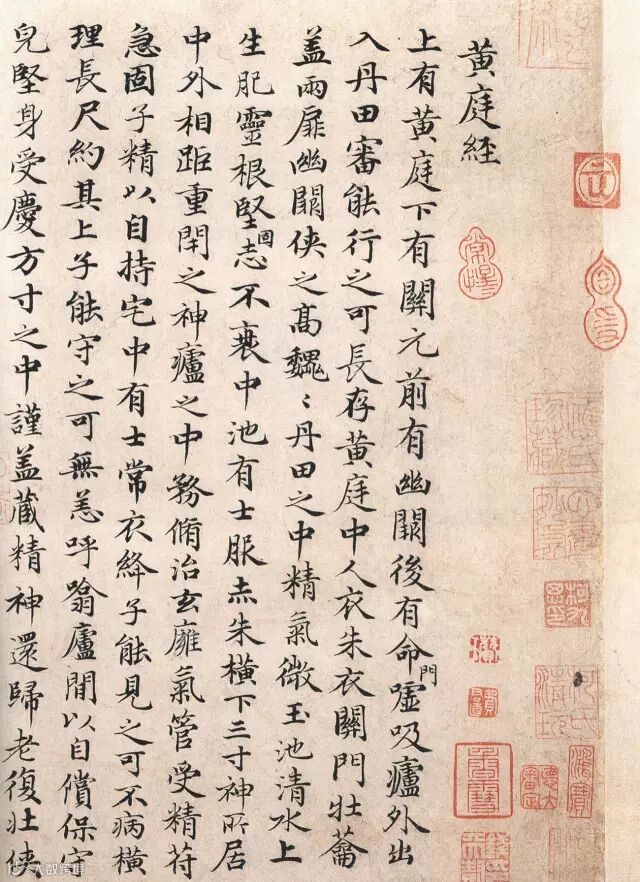 黄庭経
上有黄庭下有關元前有幽闕後有命門嘘吸廬外出
入丹田審能行之可長存黄庭中人衣朱衣關門壮蘥
盖兩扉幽闕侠之高魏〻丹田之中精氣微玉池清水上
生肥靈根堅固志不衰中池有士服赤朱橫下三寸神所居
中外相距重閉之神廬之中務脩治玄廱氣管受精苻
急固子精以自持宅中有士常衣絳子能見之可不病橫
理長尺約其上子能守之可無恙呼翕廬間以自償保守
皃堅身受慶方寸之中謹盖蔵精神還歸老復壮侠